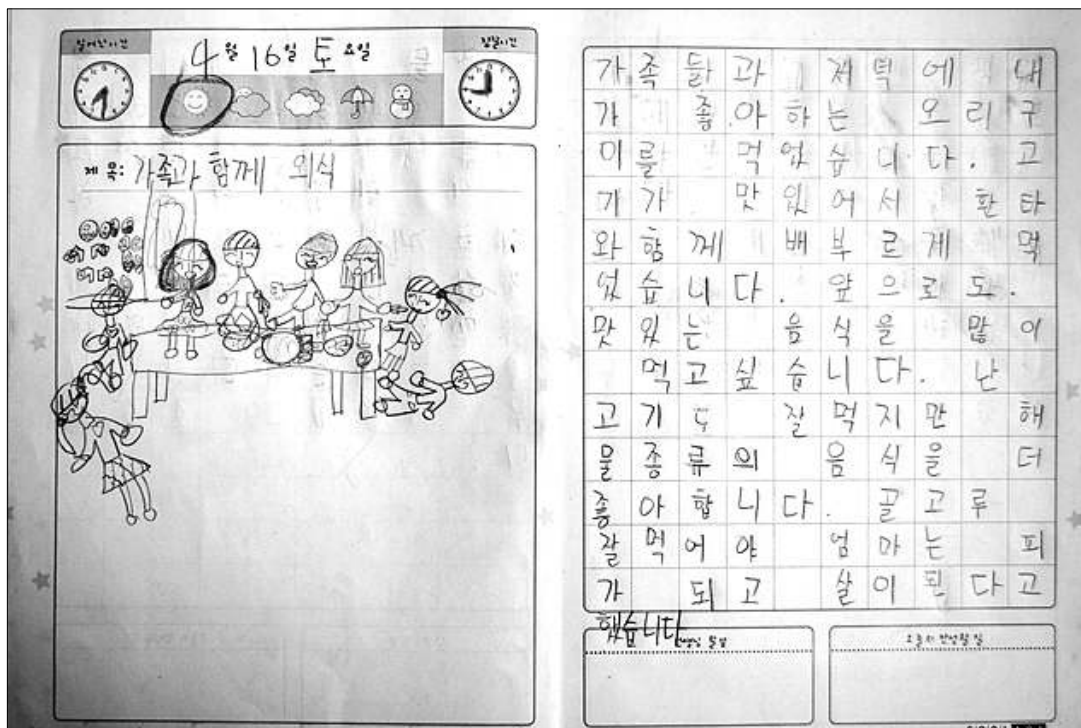 일어난시간
4월 16일 토요일
잠잘시간
제목: 가족과 함께 외식
가족들과 저녁에 내
가 좋아하는 오리구
이를 먹었습니다. 고
기가 맛있어서 환타
와함께 배부르게 먹
었습니다. 앞으로도.
맛있는 음식을 많이
먹고싶습니다. 난
고기도 잘먹지만 해
물종류의 음식을 더
좋아합니다. 골고루
잘먹어야 엄마는 피
가 되고 살이된다고
했습니다